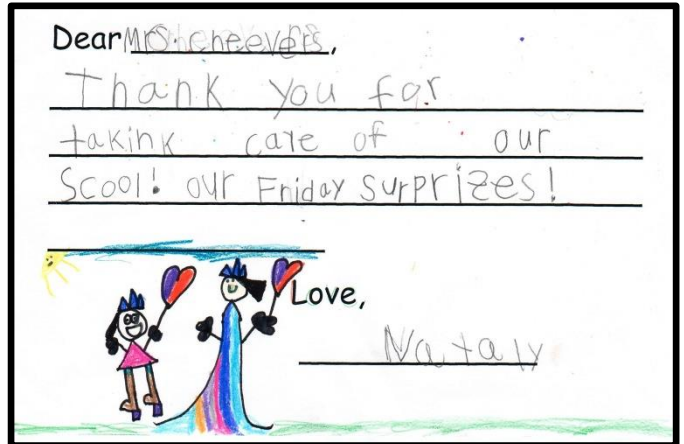 Dear Mrs. cheevers,
Thank you for
takink care of our
Scool! our Friday Surprizes!
Love,
Nataly